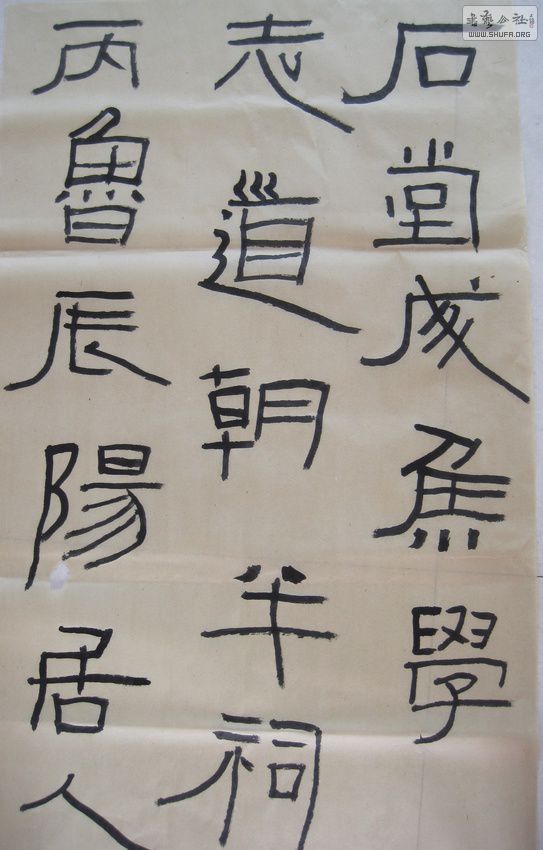 石堂成焦學
志道朝半祠
丙魯辰陽居人
書藝公社
WWW.SHUFA.ORG